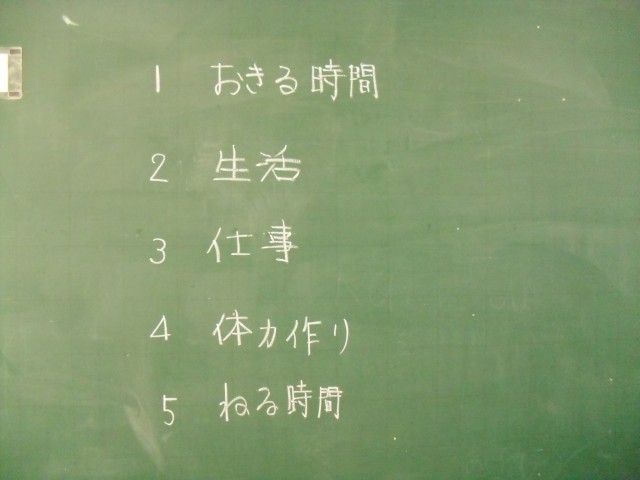 1 おきる時間
2 生活
3 仕事
4 体力作り
5 ねる時間